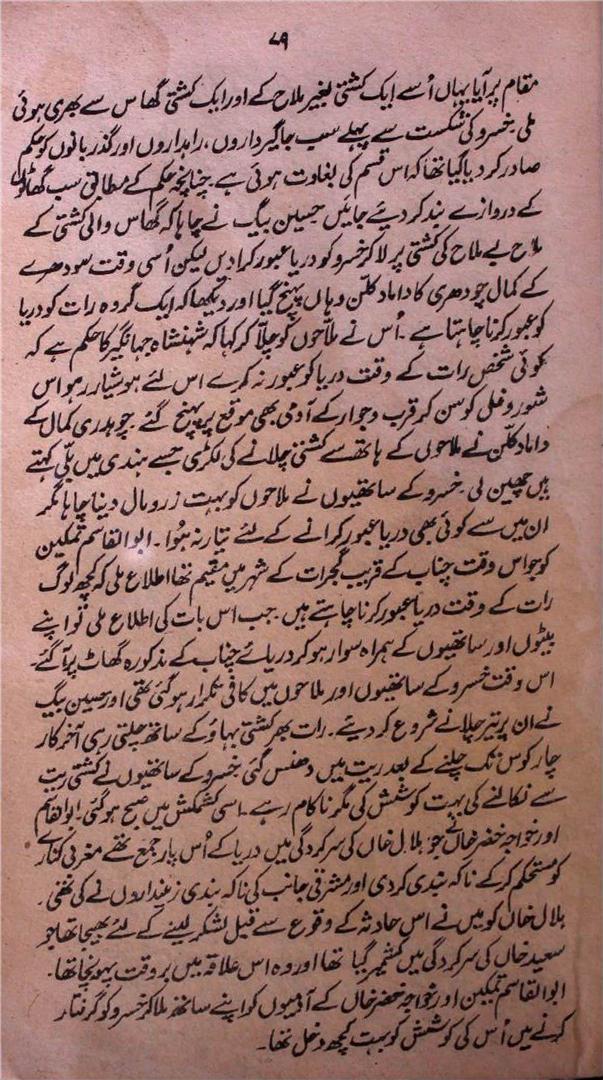 ۷۹
مقام پر آیا یہاں اُسے ایک کشتی بغیر ملاح کے اور ایک کشتی گھاس سے بھری ہوئی
ملی خسرو کی شکست سے پہلے سب جاگیرداروں، راہداروں اور گذربانوں کو حکم
صادر کر دیا گیا تھا کہ اس قسم کی بغاوت ہوئی ہے۔ چنانچہ حکم کے مطابق سب گھاٹوں
کے دروازے بند کر دیئے جائیں حسین بیگ نے چاہا کہ گھاس والی کشتی کے
ملاح بے ملاح کی کشتی پر لا کر خسرو کو دریا عبور کرا دیں لیکن اُسی وقت سودھرے
کے کمال چودھری کا داماد کلّن وہاں پہنچ گیا اور دیکھا کہ ایک گروہ رات کو دریا
کو عبور کرنا چاہتا ہے۔ اُس نے ملاحوں کو چلّا کر کہا کہ شہنشاہ جہانگیر کا حکم ہے کہ
کوئی شخص رات کے وقت دریا کو عبور نہ کرے اس لئے ہوشیار رہو اس
شور و غل کو سن کر قرب و جوار کے آدمی بھی موقع پر پہنچ گئے۔ چوہدری کمال کے
داماد کلّن نے ملاحوں کے ہاتھ سے کشتی چلانے کی لکڑی جسے ہندی میں بلّی کہتے
ہیں چھین لی۔ خسرو کے ساتھیوں نے ملاحوں کو بہت زر و مال دینا چاہا مگر
ان میں سے کوئی بھی دریا عبور کرانے کے لئے تیار نہ ہُوا۔ ابوالقاسم تمکین
کو جو اس وقت چناب کے قریب گجرات کے شہر میں مقیم تھا اطلاع ملی کہ کچھ لوگ
رات کے وقت دریا عبور کرنا چاہتے ہیں۔ جب اس بات کی اطلاع ملی تو اپنے
بیٹوں اور ساتھیوں کے ہمراہ سوار ہو کر دریائے چناب کے مذکورہ گھاٹ پر آ گئے۔
اس وقت خسرو کے ساتھیوں اور ملاحوں میں کافی تکرار ہو گئی تھی اور حسین بیگ
نے ان پر تیر چلانے شروع کر دیئے۔ رات بھر کشتی بہاؤ کے ساتھ چلتی رہی آخر کار
چار کوس تک چلنے کے بعد ریت میں دھنس گئی۔ خسرو کے ساتھیوں نے کشتی ریت
سے نکالنے کی بہت کوشش کی مگر ناکام رہے۔ اسی کشمکش میں صبح ہو گئی۔ ابوالقاسم
اور خواجہ خضر خاں نے جو بلال خاں کی سرکردگی میں دریا کے اُس پار جمع تھے مغربی کنارے
کو مستحکم کر کے ناکہ بندی کر دی اور مشرقی جانب کی ناکہ بندی زمینداروں نے کی تھی۔
بلال خاں کو میں نے اس حادثہ کے وقوع سے قبل لشکر لینے کے لئے بھیجا تھا جو
سعید خاں کی سرکردگی میں کشمیر گیا تھا اور وہ اس علاقہ میں بروقت پہونچا تھا۔
ابوالقاسم تمکین اور خواجہ خضر خاں کے آدمیوں کو اپنے ساتھ ملا کر خسرو کو گرفتار
کرنے میں اُس کی کوشش کو بہت کچھ دخل تھا۔